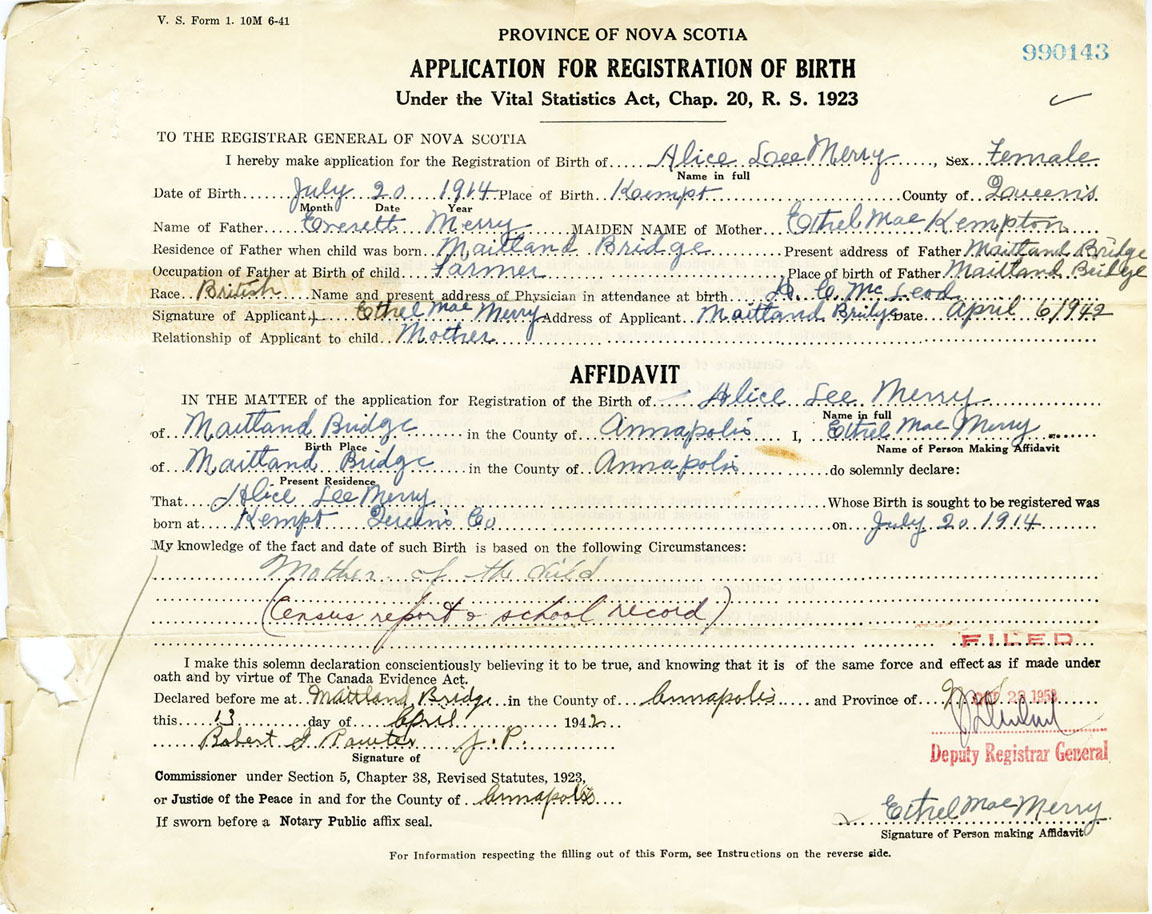 V. S. Form 1. 10M 6-41
PROVINCE OF NOVA SCOTIA
990143
APPLICATION FOR REGISTRATION OF BIRTH
Under the Vital Statistics Act, Chap. 20, R. S. 1923
TO THE REGISTRAR GENERAL OF NOVA SCOTIA
I hereby make application for the Registration of Birth of Alice Lee Merry, Sex Female
Name in full
Date of Birth July 20 1914 Place of Birth Kempt County of Queen's
Month Date Year
Name of Father Everett Merry MAIDEN NAME of Mother Ethel Mae Kempton
Residence of Father when child was born Maitland Bridge Present address of Father Maitland Bridge
Occupation of Father at Birth of child Farmer Place of birth of Father Maitland Bridge
Race British Name and present address of Physician in attendance at birth H. C. McLeod
Signature of Applicant Ethel Mae Merry Address of Applicant Maitland Bridge Date April 6/1942
Relationship of Applicant to child Mother
AFFIDAVIT
IN THE MATTER of the application for Registration of the Birth of Alice Lee Merry
Name in full
of Maitland Bridge in the County of Annapolis I, Ethel Mae Merry
Birth Place Name of Person Making Affidavit
of Maitland Bridge in the County of Annapolis do solemnly declare:
Present Residence
That Alice Lee Merry Whose Birth is sought to be registered was
born at Kempt Queen's Co on July 20 1914
My knowledge of the fact and date of such Birth is based on the following Circumstances:
Mother of the child
(Census report & school record)
FILED
I make this solemn declaration conscientiously believing it to be true, and knowing that it is of the same force and effect as if made under
oath and by virtue of The Canada Evidence Act.
Declared before me at Maitland Bridge in the County of Annapolis and Province of
28 1953
this 13 day of April 1942
Robert J. P.
Signature of
Deputy Registrar General
Commissioner under Section 5, Chapter 38, Revised Statutes, 1923,
or Justice of the Peace in and for the County of Annapolis
If sworn before a Notary Public affix seal.
Ethel Mae Merry
Signature of Person making Affidavit
For Information respecting the filling out of this Form, see Instructions on the reverse side.